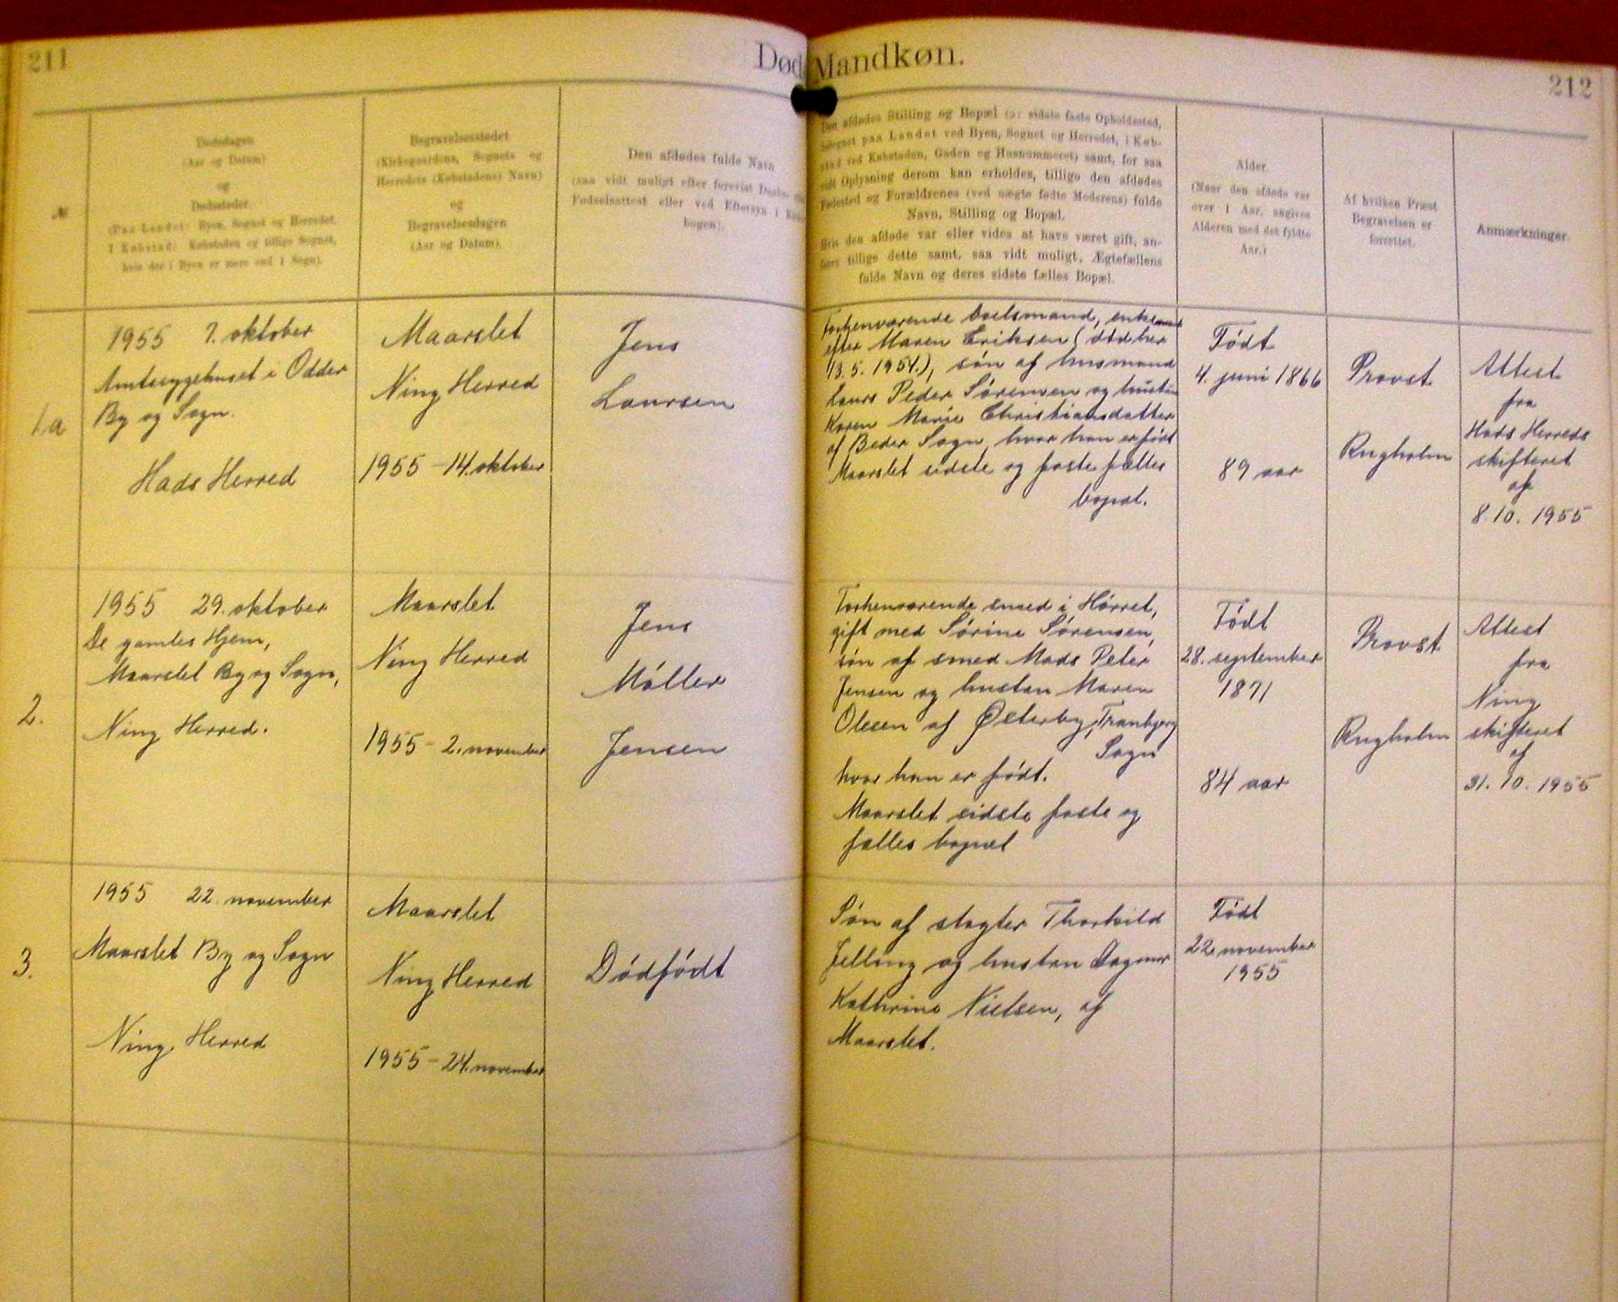 211
Død
Mandkøn.
212
№
Dødsdagen
(Aar og Datum)
og
Dødsstedet.
(Paa Landet: Byen, Sognet og Herredet.
I Købstad: Købstaden og tillige Sognet,
hvis der i Byen er mere end 1 Sogn).
Begravelsesstedet
(Kirkegaardens, Sognets og
Herredets (Købstadens) Navn)
og
Begravelsesdagen
(Aar og Datum).
Den afdødes fulde Navn
(saa vidt muligt efter forevist
Fødselsattest eller ved Eftersyn i
bogen).
Den afdødes Stilling og Bopæl (ɔ: sidste faste Opholdssted,
betegnet paa Landet ved Byen, Sognet og Herredet, i Køb-
stad ved Købstaden, Gaden og Husnummeret) samt, for saa
vidt Oplysning derom kan erholdes, tillige den afdødes
Fødested og Forældrenes (ved uægte fødte Moderens) fulde
Navn, Stilling og Bopæl.
Hvis den afdøde var eller vides at have været gift, an-
føres tillige dette samt, saa vidt muligt, Ægtefællens
fulde Navn og deres sidste fælles Bopæl.
Alder.
(Naar den afdøde var
over 1 Aar, angives
Alderen med det fyldte
Aar.)
Af hvilken Præst
Begravelsen er
forrettet.
Anmærkninger.
1a
1955 7. oktober
Amtssygehuset i Odder
By og Sogn.
Hads Herred
Maarslet
Ning Herred
1955 – 14. oktober
Jens
Laursen
Forhenværende boelsmand, enkemand
efter Maren Eriksen (død her
13.5.1954.), søn af husmand
Laurs Peder Sørensen og hustru
Karen Marie Christiansdatter
af Beder Sogn, hvor han er født
Maarslet sidste og faste fælles
bopæl.
Født
4. juni 1866
89 aar
Provst
Rugholm
Attest
fra
Hads Herreds
skifteret
af
8.10.1955
2.
1955 29. oktober
De gamles Hjem,
Maarslet By og Sogn,
Ning Herred.
Maarslet
Ning Herred
1955 – 2. november
Jens
Møller
Jensen
Forhenværende smed i Hørret,
gift med Sørine Sørensen,
søn af smed Mads Peter
Jensen og hustru Maren
Olesen af Østerby, Tranbjerg
Sogn
hvor han er født.
Maarslet sidste faste og
fælles bopæl
Født
28. september
1871
84 aar
Provst
Rugholm
Attest
fra
Ning
skifteret
af
31.10.1955
3.
1955 22. november
Maarslet By og Sogn
Ning Herred
Maarslet
Ning Herred
1955 – 24. november
Dødfødt
Søn af slagter Thorkild
Jelling og hustru Dagmar
Kathrine Nielsen, af
Maarslet.
Født
22. november
1955